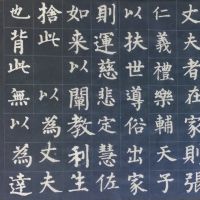 丈夫者在家則張
仁義禮樂輔天子
以扶世導俗出家
則運慈悲定慧佐
如來以闡教利生
捨此以為丈夫
也背此無以為達